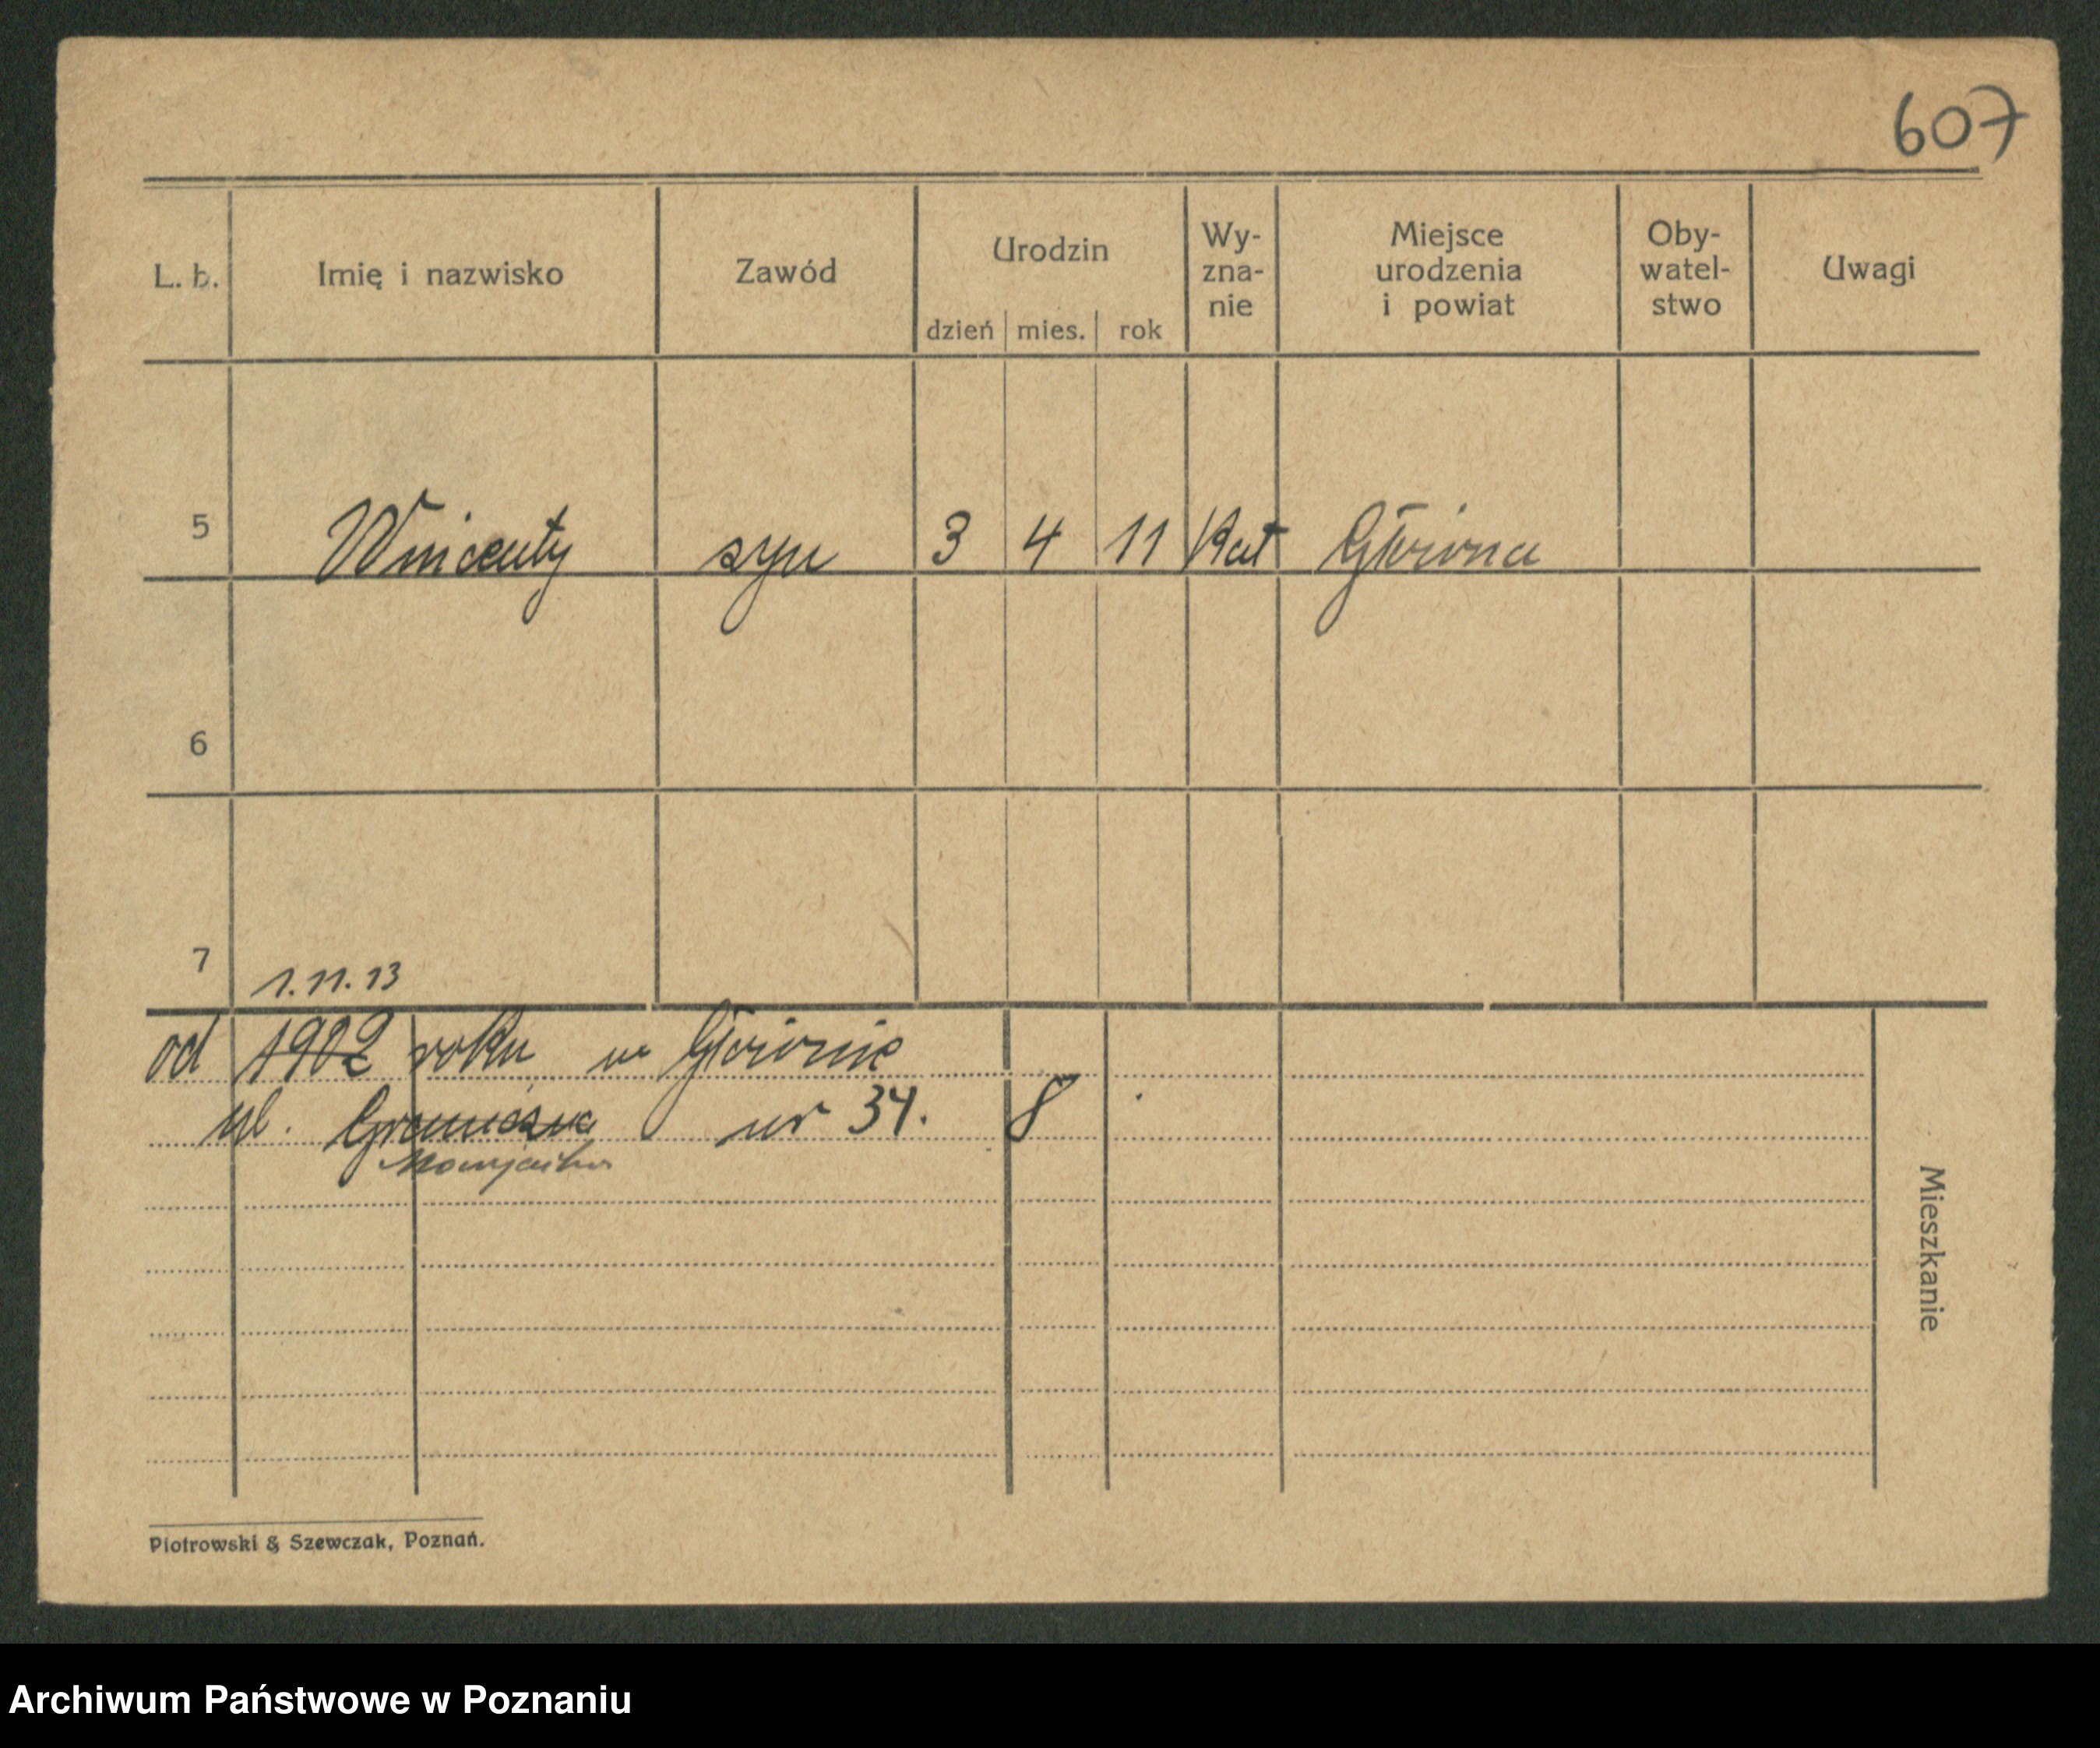 607
L. b. Imię i nazwisko Zawód Urodzin dzień mies. rok Wy-zna-nie Miejsce urodzenia i powiat Oby-watel-stwo Uwagi
5 Wincenty syn 3 4 11 Kat Główna
6
7
1.11.13
od 1902 roku w Głównie
ul. Graniczna nr 34. 8
Mieszkanie
Piotrowski & Szewczak, Poznań.
Archiwum Państwowe w Poznaniu